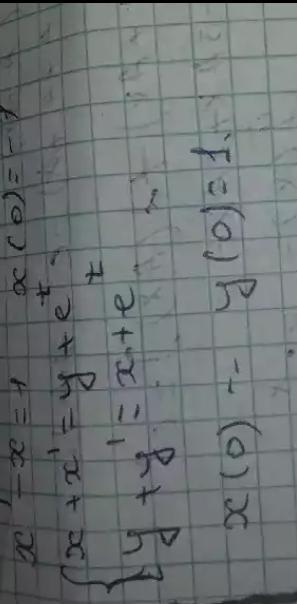 x' - x = 1 x(0) = -1
{ x + x' = y + e^t,
y + y' = x + e^t
x(0) -- y(0) = 1.